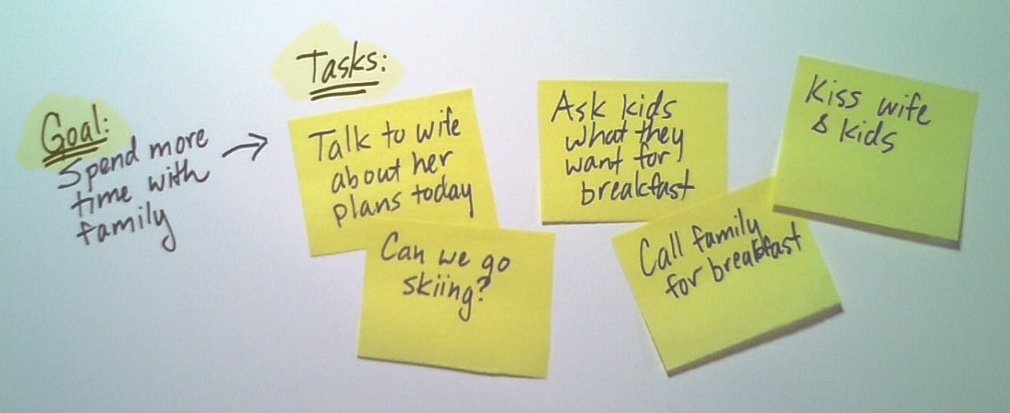 Goal:
Spend more
time with
family
Tasks:
Talk to wife
about her
plans today
Can we go
skiing?
Ask kids
what they
want for
breakfast
Call family
for breakfast
Kiss wife
& kids